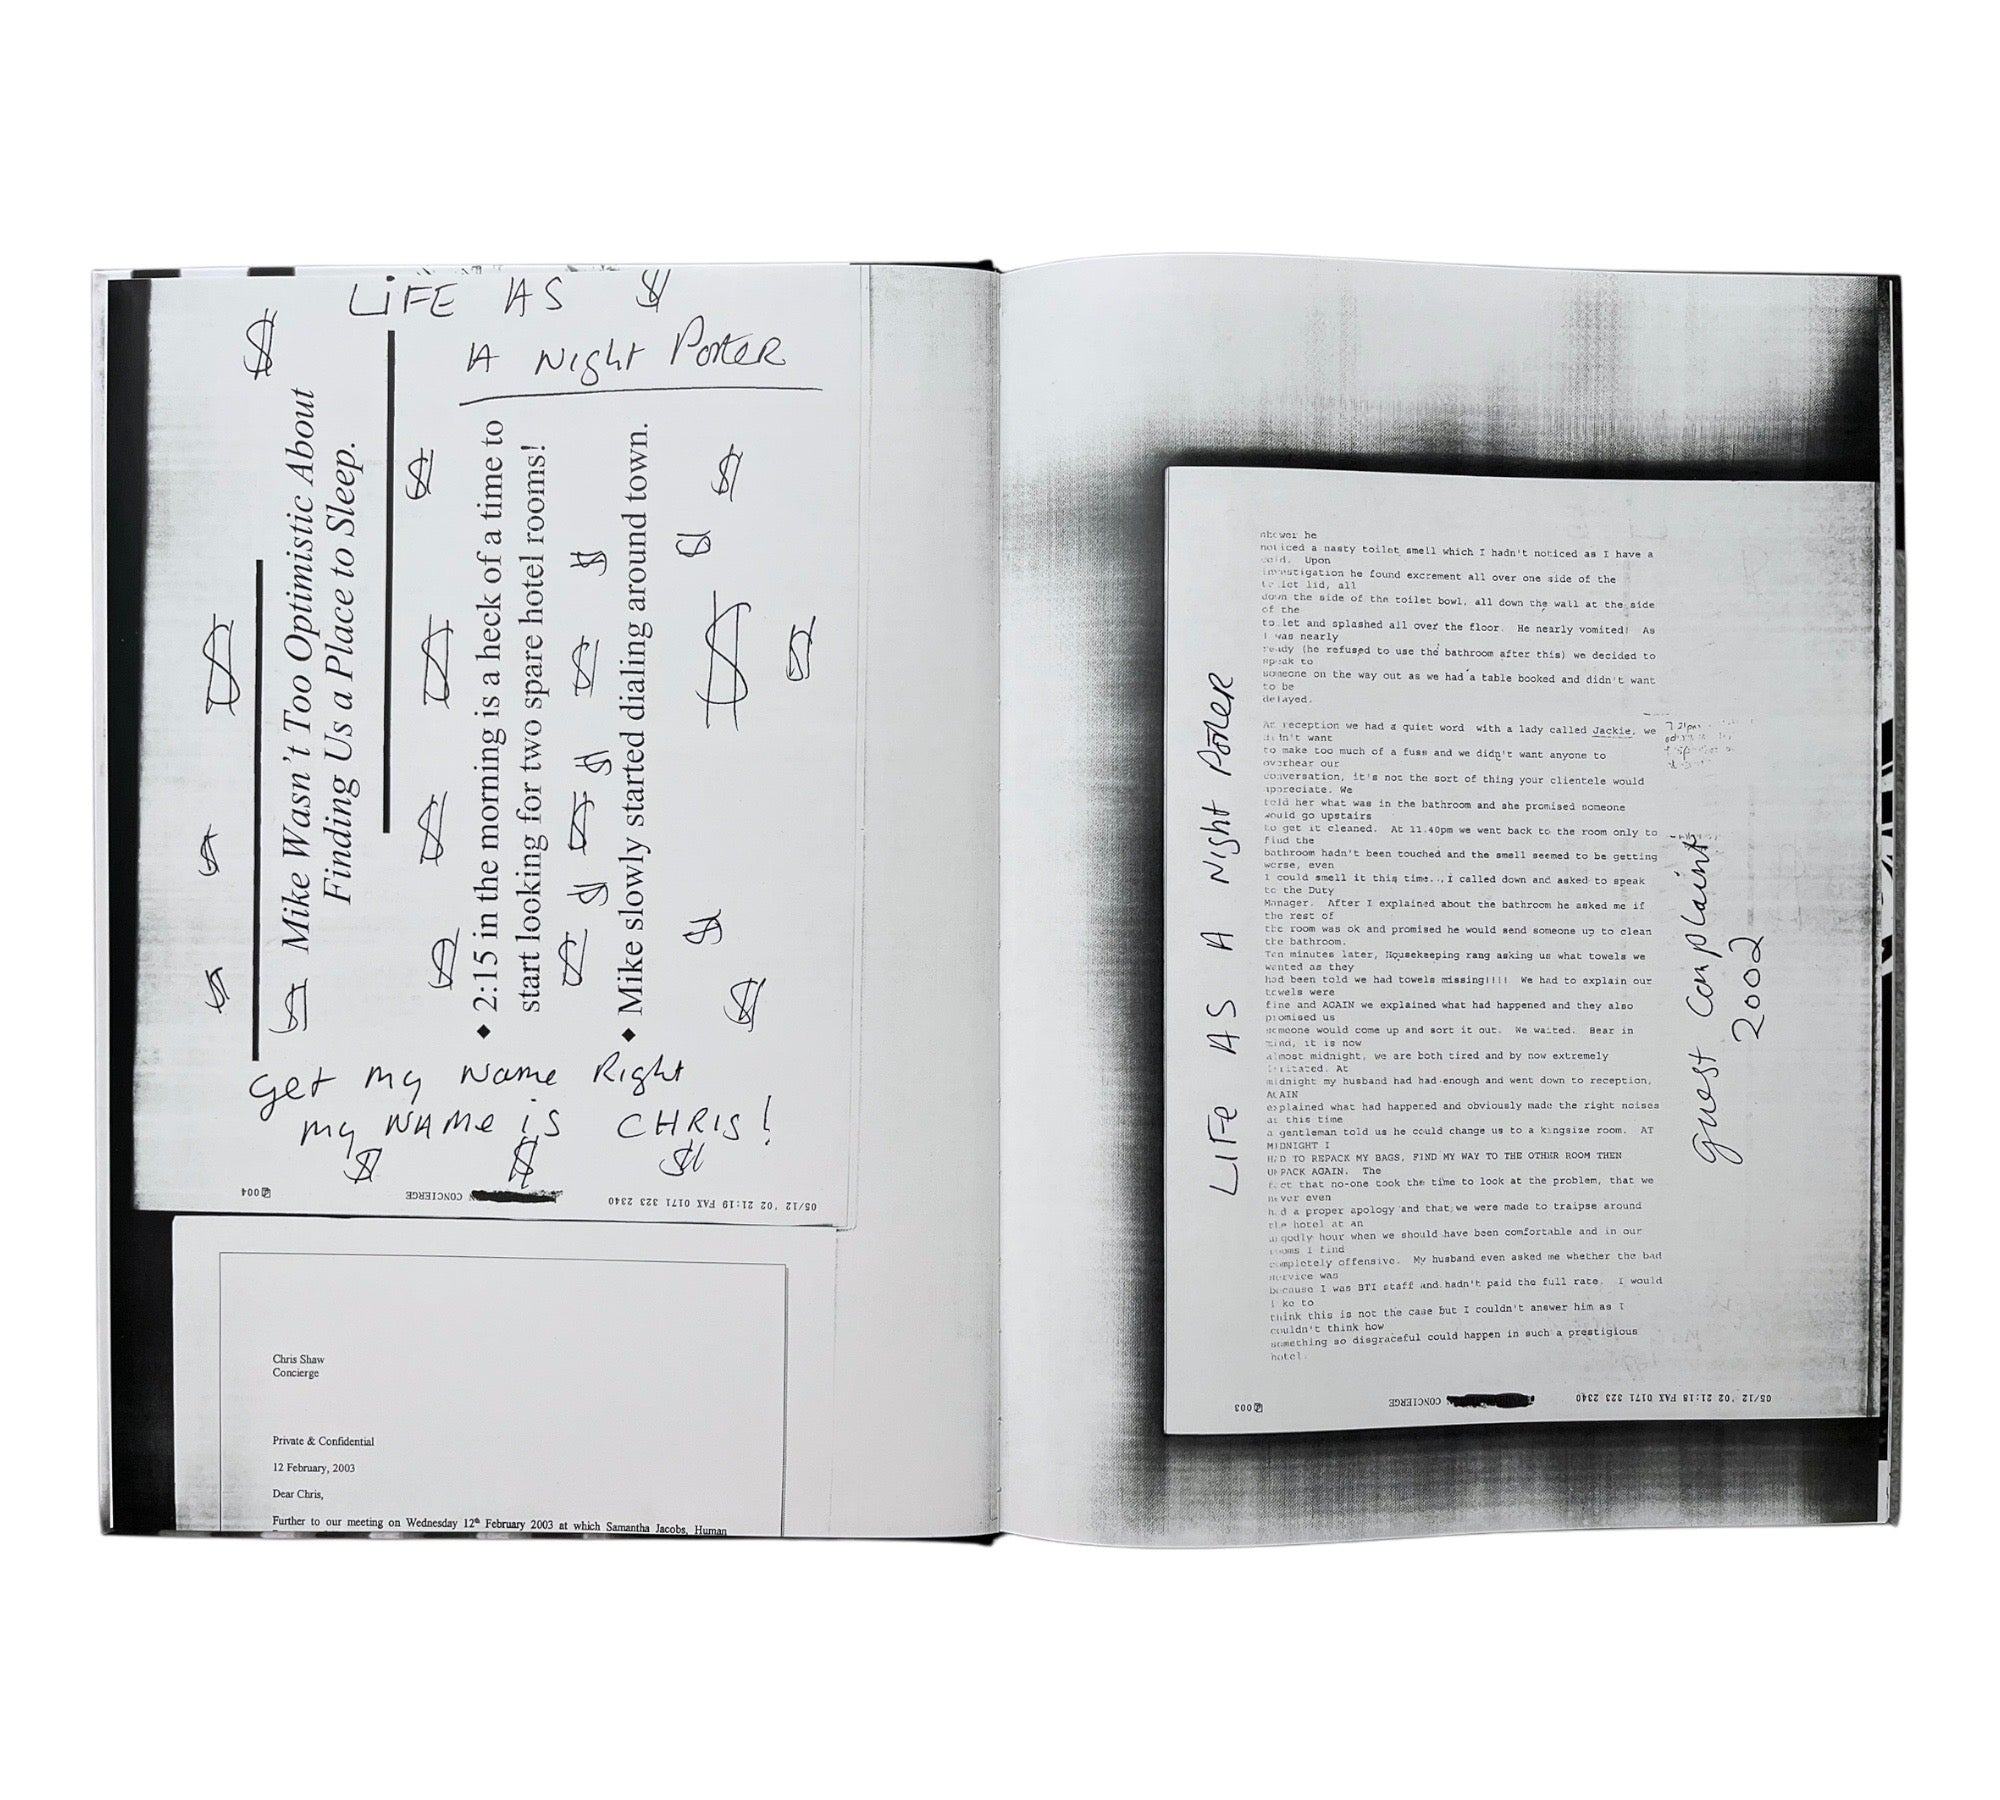 LiFE AS $
A Night Porter
$
Mike Wasn't Too Optimistic About
Finding Us a Place to Sleep.
◆ 2:15 in the morning is a heck of a time to
start looking for two spare hotel rooms!
◆ Mike slowly started dialing around town.
get my name Right
my NAMe is CHRIS!
$ $ $
05/12 '02 21:19 FAX 0171 323 2340
CONCIERGE
004
Chris Shaw
Concierge
Private & Confidential
12 February, 2003
Dear Chris,
Further to our meeting on Wednesday 12th February 2003 at which Samantha Jacobs, Human
LIFe AS A Night Porter
shower he
noticed a nasty toilet smell which I hadn't noticed as I have a
cold. Upon
investigation he found excrement all over one side of the
toilet lid, all
down the side of the toilet bowl, all down the wall at the side
of the
toilet and splashed all over the floor. He nearly vomited! As
I was nearly
ready (he refused to use the bathroom after this) we decided to
speak to
someone on the way out as we had a table booked and didn't want
to be
delayed.
At reception we had a quiet word with a lady called Jackie, we
didn't want
to make too much of a fuss and we didn't want anyone to
overhear our
conversation, it's not the sort of thing your clientele would
appreciate. We
told her what was in the bathroom and she promised someone
would go upstairs
to get it cleaned. At 11.40pm we went back to the room only to
find the
bathroom hadn't been touched and the smell seemed to be getting
worse, even
I could smell it this time... I called down and asked to speak
to the Duty
Manager. After I explained about the bathroom he asked me if
the rest of
the room was ok and promised he would send someone up to clean
the bathroom.
Ten minutes later, Housekeeping rang asking us what towels we
wanted as they
had been told we had towels missing!!!! We had to explain our
towels were
fine and AGAIN we explained what had happened and they also
promised us
someone would come up and sort it out. We waited. Bear in
mind, it is now
almost midnight, we are both tired and by now extremely
irritated. At
midnight my husband had had enough and went down to reception,
AGAIN
explained what had happened and obviously made the right noises
as this time
a gentleman told us he could change us to a kingsize room. AT
MIDNIGHT I
HAD TO REPACK MY BAGS, FIND MY WAY TO THE OTHER ROOM THEN
UNPACK AGAIN. The
fact that no-one took the time to look at the problem, that we
never even
had a proper apology and that we were made to traipse around
the hotel at an
ungodly hour when we should have been comfortable and in our
rooms I find
completely offensive. My husband even asked me whether the bad
service was
because I was BTI staff and hadn't paid the full rate. I would
like to
think this is not the case but I couldn't answer him as I
couldn't think how
something so disgraceful could happen in such a prestigious
hotel.
guest complaint
2002
05/12 '02 21:18 FAX 0171 323 2340
CONCIERGE
003